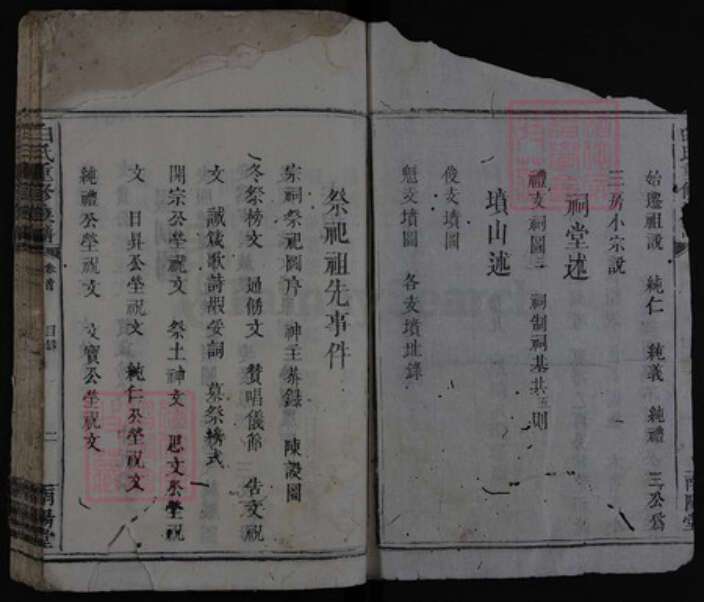 始遷祖說 純仁 純義 純禮 三公為
三房小宗說
祠堂述
禮支祠圖三 祠制祠基共五則
墳山述
俊支墳圖
魁支墳圖 各支墳址錄
祭祀祖先事件
宗祠祭祀圖序 神主莽錄 陳設圖
冬祭榜文 通俑文 贊唱儀節 告文祝
文 誠箴歌詩嘏妥詞 墓祭榜式
開宗公塋祝文 祭土神文 思文公塋祝
文 日昇公塋祝文 純仁公塋祝文
純禮公塋祝文 文寶公塋祝文
白氏重修族譜 卷首 目錄 二 南陽堂